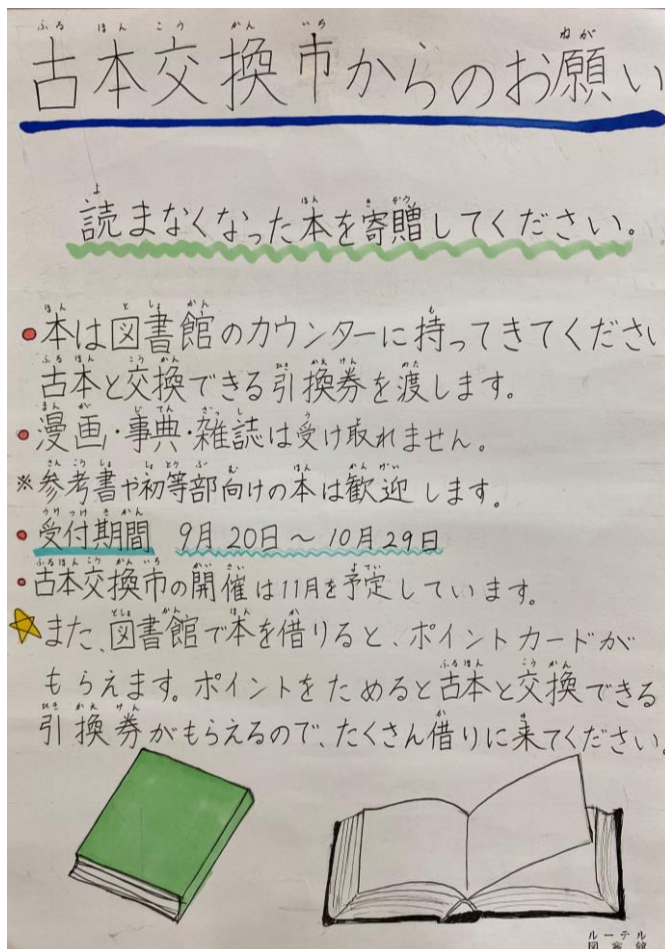 古本交換市からのお願い
読まなくなった本を寄贈してください。
本は図書館のカウンターに持ってきてください
古本と交換できる引換券を渡します。
漫画・事典・雑誌は受け取れません。
※参考書や初等部向けの本は歓迎します。
受付期間 9月20日〜10月29日
古本交換市の開催は11月を予定しています。
また、図書館で本を借りると、ポイントカードが
もらえます。ポイントをためると古本と交換できる
引換券がもらえるので、たくさん借りに来てください。
ルーテル
図書館